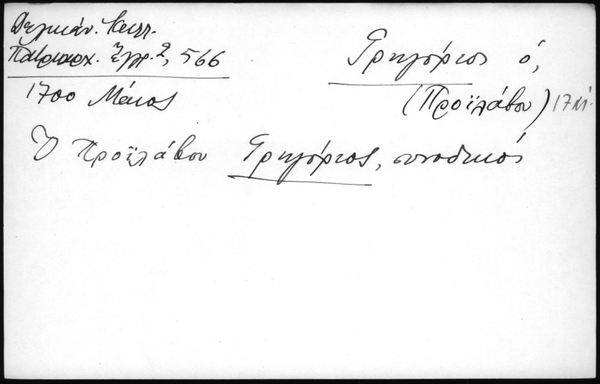 Δελικάν. Καλλ.
Πατριαρχ. Ἔγγρ. 2, 566
1700 Μάιος
Γρηγόριος ὁ,
(Προϊλάβου) 17αι.
Ὁ Προϊλάβου Γρηγόριος, συνοδικός